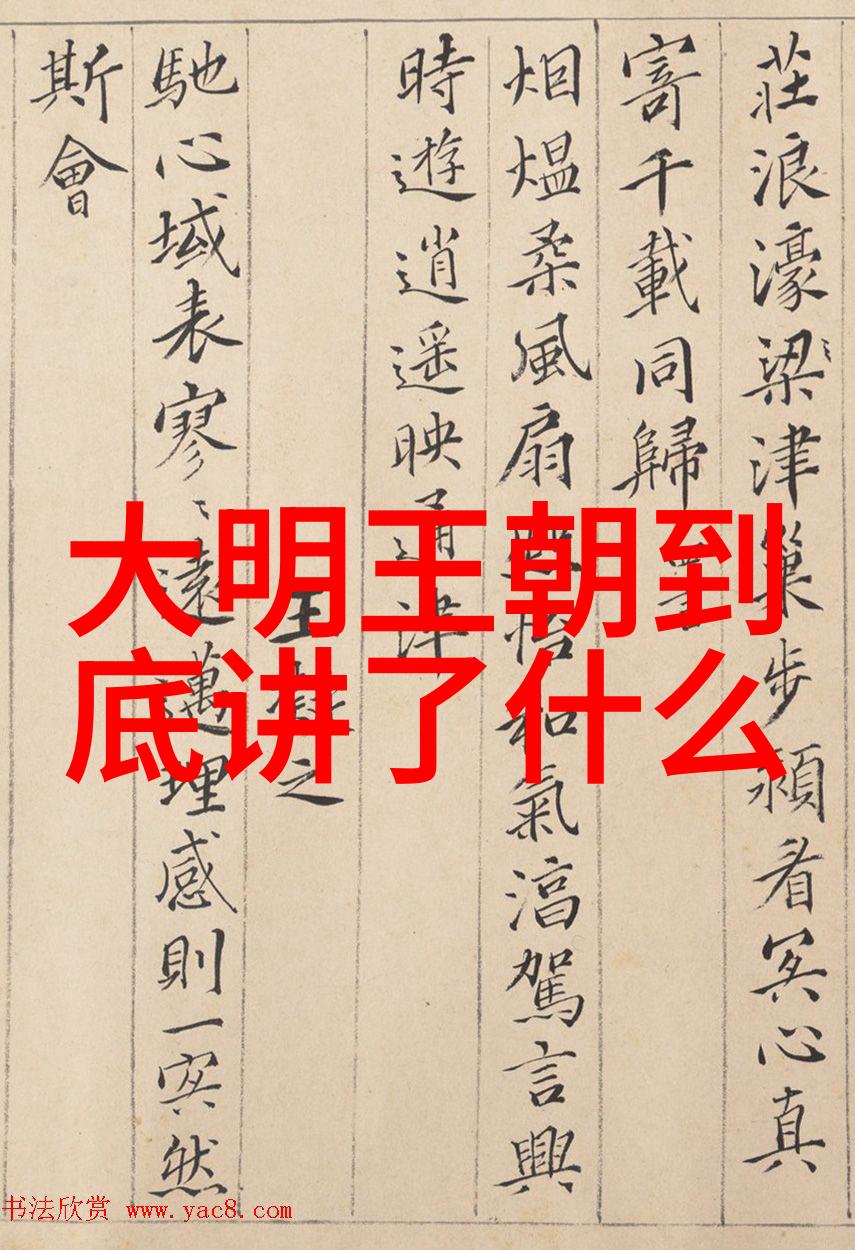 莊浪濠梁津巢步潁冥心真
寄千載同歸
烟煴柔風扇熙怡和氣淳駕言興
時遊逍遥映通津
王之
馳心域表寥〻遠邁理感則一冥然
斯會
大明王朝到
底讲了什么
书法欣赏 www.yac8.com